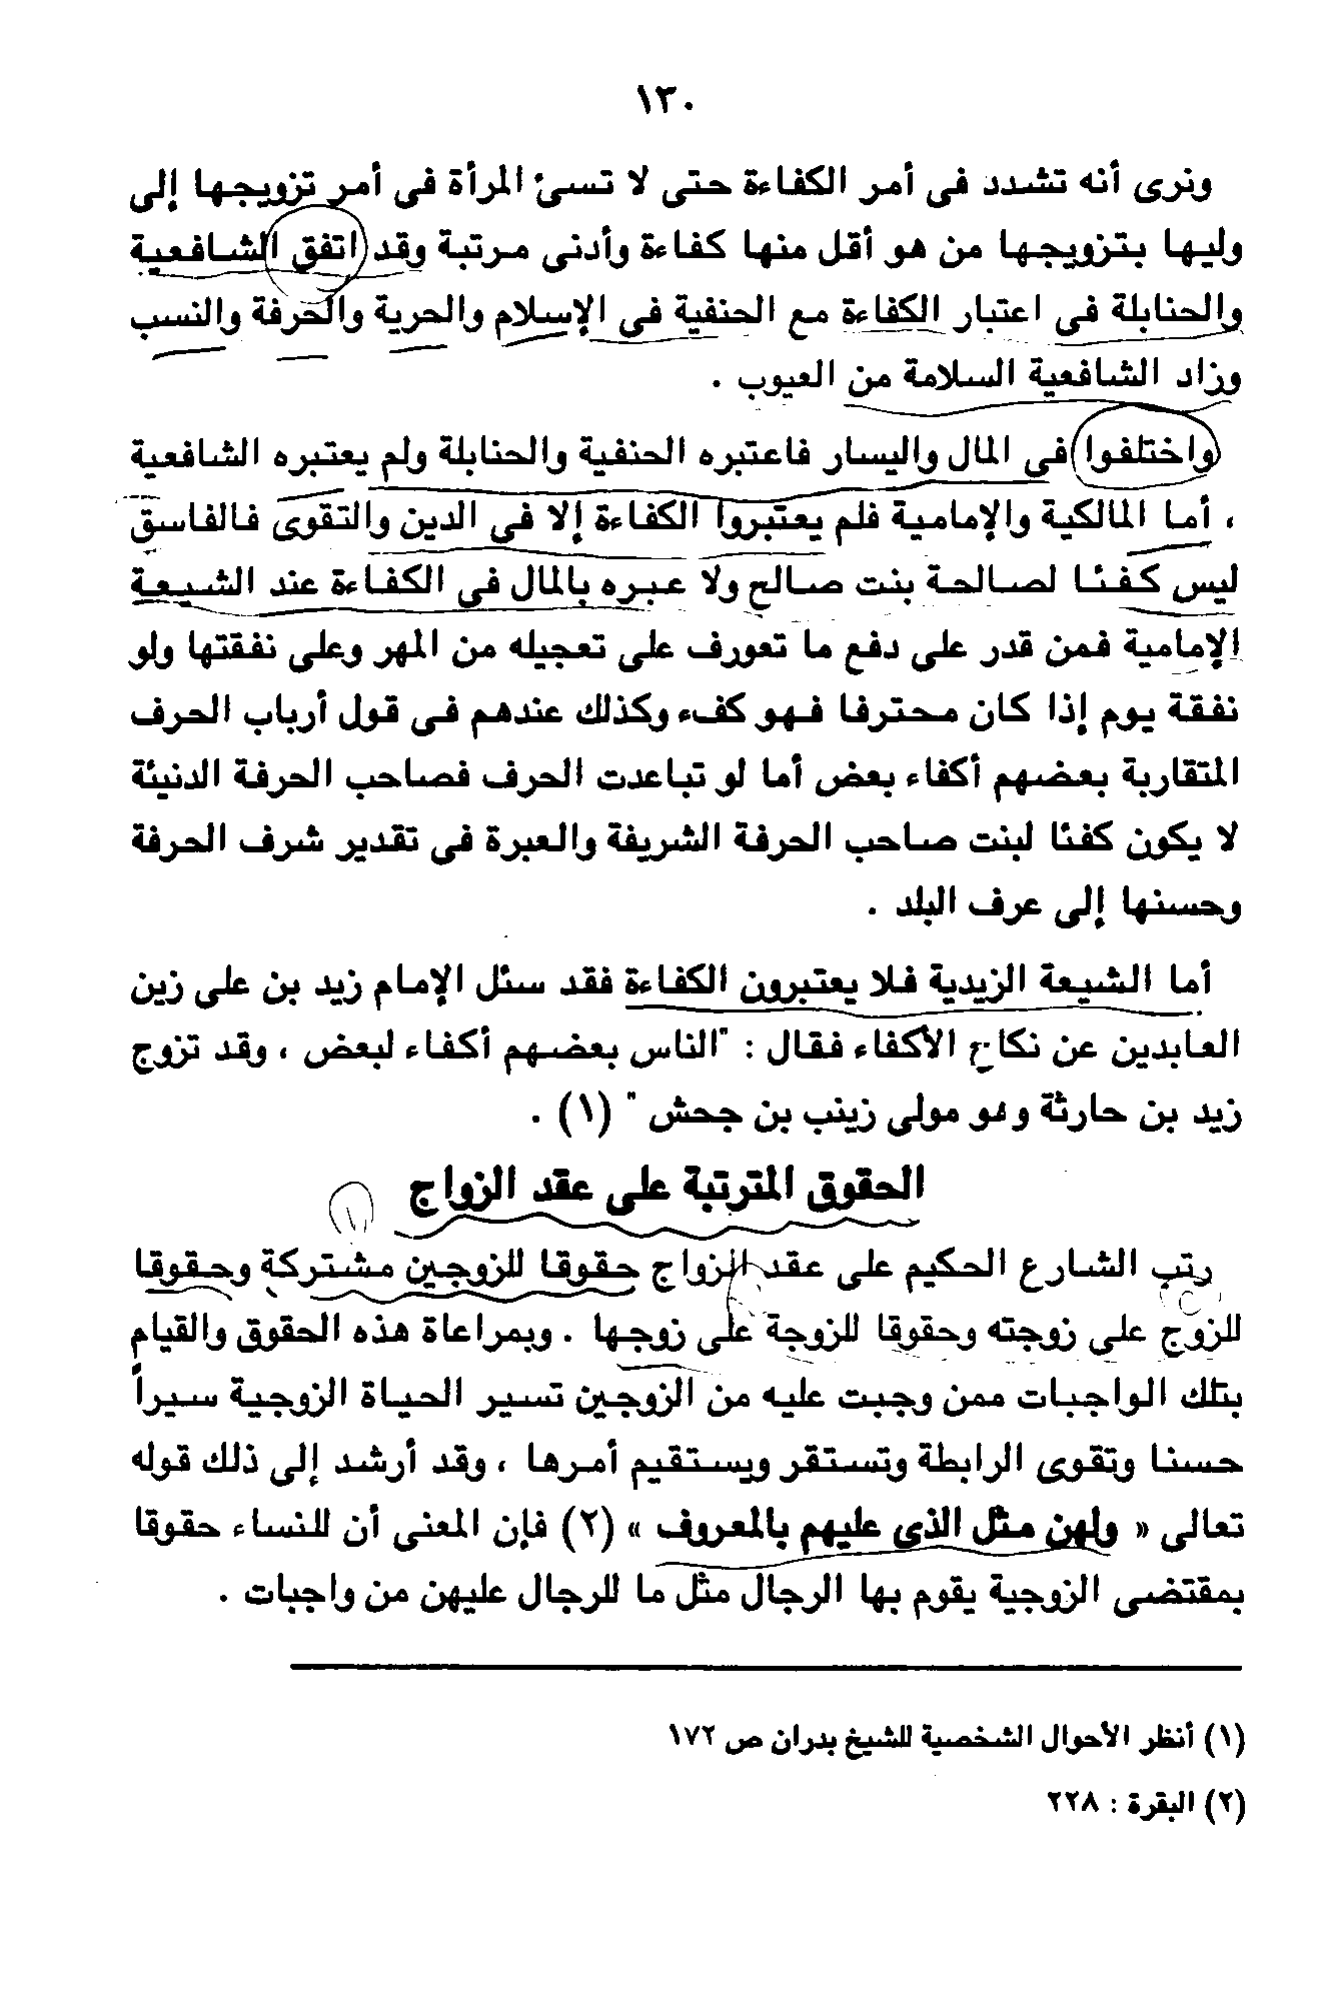 ١٣٠
ونرى أنه تشدد فى أمر الكفاءة حتى لا تسئ المرأة فى أمر تزويجها إلى
وليها بتزويجها من هو أقل منها كفاءة وأدنى مرتبة وقد اتفق الشافعية
والحنابلة فى اعتبار الكفاءة مع الحنفية فى الإسلام والحرية والحرفة والنسب
وزاد الشافعية السلامة من العيوب .
واختلفوا فى المال واليسار فاعتبره الحنفية والحنابلة ولم يعتبره الشافعية
، أما المالكية والإمامية فلم يعتبروا الكفاءة إلا فى الدين والتقوى فالفاسق
ليس كفئا لصالحة بنت صالح ولا عبره بالمال فى الكفاءة عند الشيعة
الإمامية فمن قدر على دفع ما تعورف على تعجيله من المهر وعلى نفقتها ولو
نفقة يوم إذا كان محترفا فهو كفء وكذلك عندهم فى قول أرباب الحرف
المتقاربة بعضهم أكفاء بعض أما لو تباعدت الحرف فصاحب الحرفة الدنيئة
لا يكون كفئا لبنت صاحب الحرفة الشريفة والعبرة فى تقدير شرف الحرفة
وحسنها إلى عرف البلد .
أما الشيعة الزيدية فلا يعتبرون الكفاءة فقد سئل الإمام زيد بن على زين
العابدين عن نكاح الأكفاء فقال : "الناس بعضهم أكفاء لبعض ، وقد تزوج
زيد بن حارثة وهو مولى زينب بن جحش " (١) .
الحقوق المترتبة على عقد الزواج
رتب الشارع الحكيم على عقد الزواج حقوقا للزوجين مشتركة وحقوقا
للزوج على زوجته وحقوقا للزوجة على زوجها . وبمراعاة هذه الحقوق والقيام
بتلك الواجبات ممن وجبت عليه من الزوجين تسير الحياة الزوجية سيراً
حسنا وتقوى الرابطة وتستقر ويستقيم أمرها ، وقد أرشد إلى ذلك قوله
تعالى « ولهن مثل الذى عليهم بالمعروف » (٢) فإن المعنى أن للنساء حقوقا
بمقتضى الزوجية يقوم بها الرجال مثل ما للرجال عليهن من واجبات .
(١) أنظر الأحوال الشخصية للشيخ بدران ص ١٧٢
(٢) البقرة : ٢٢٨